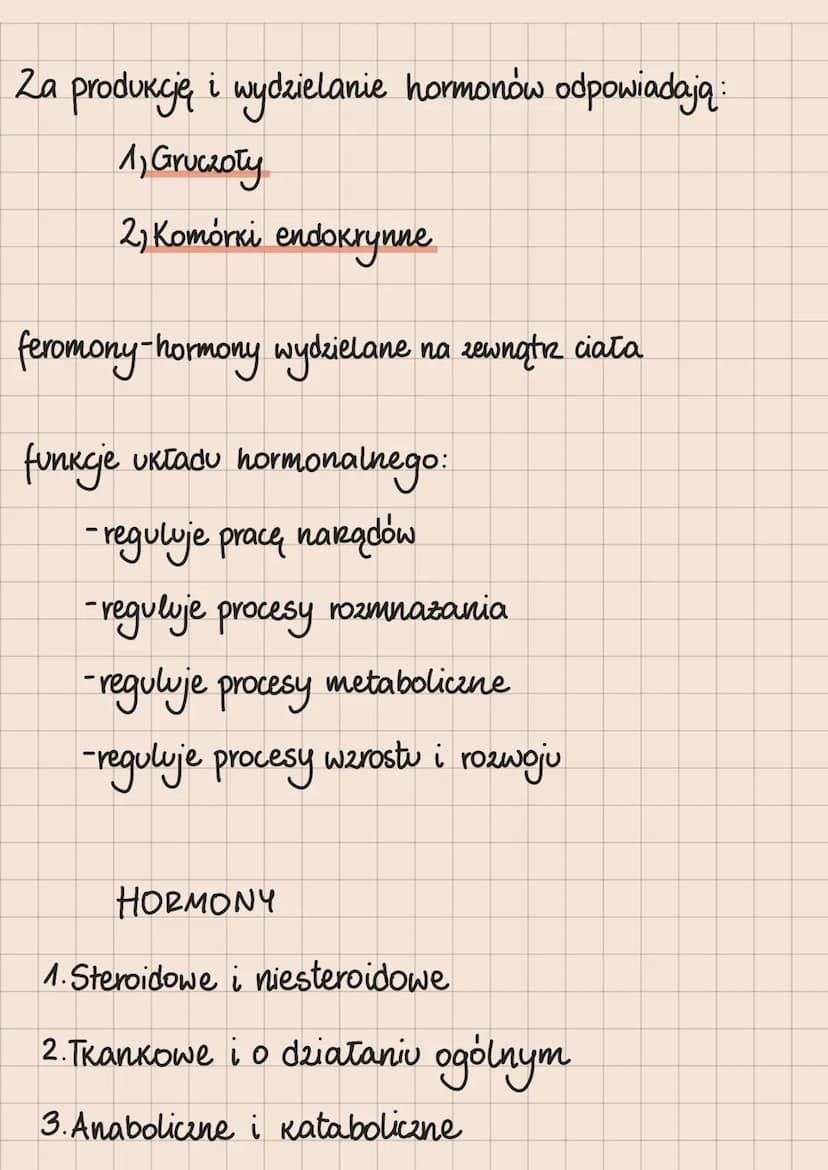 Za produkcję i wydzielanie hormonów odpowiadają:
1) Gruczoły
2) Komórki endokrynne
feromony-hormony wydzielane na zewnątrz ciała
funkcje układu hormonalnego:
-reguluje pracę narządów
-reguluje procesy rozmnażania
-reguluje procesy metaboliczne
-reguluje procesy wzrostu i rozwoju
HORMONY
1. Steroidowe i niesteroidowe
2. Tkankowe i o działaniu ogólnym
3. Anaboliczne i kataboliczne